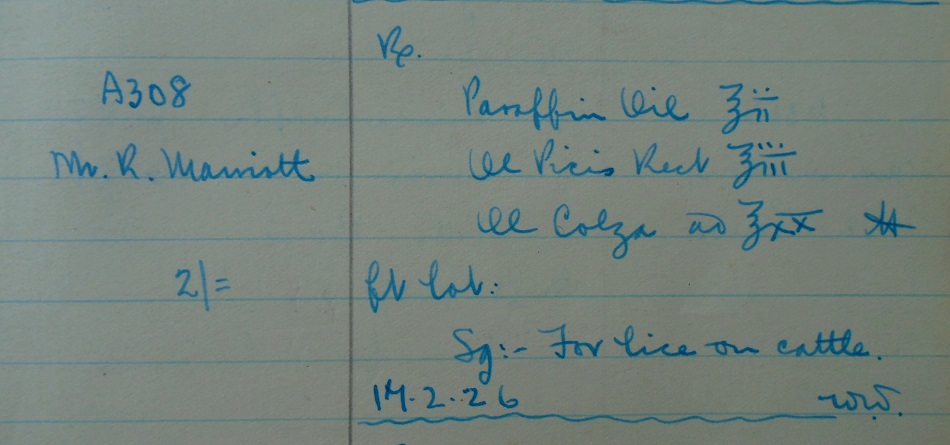 Rx.
A308
Paraffin Oil ℥ii
Mr. R. Marriott
Ol Picis Rect ℥iii
Ol Colza ad ℥xx
2/=
ft lot:
Sg:- For lice on cattle.
17.2.26